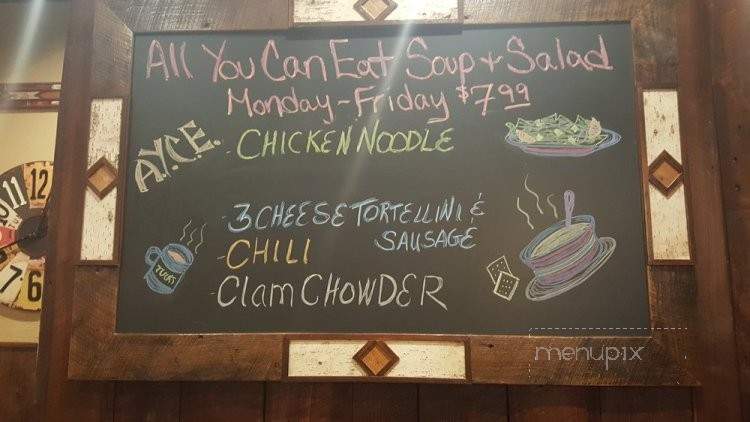 All You Can Eat Soup & Salad
Monday-Friday $7.99
A.Y.C.E. - CHICKEN NOODLE
- 3 CHEESE TORTELLINI &
SAUSAGE
- CHILI
- Clam CHOWDER
11 12
7 6
menupix